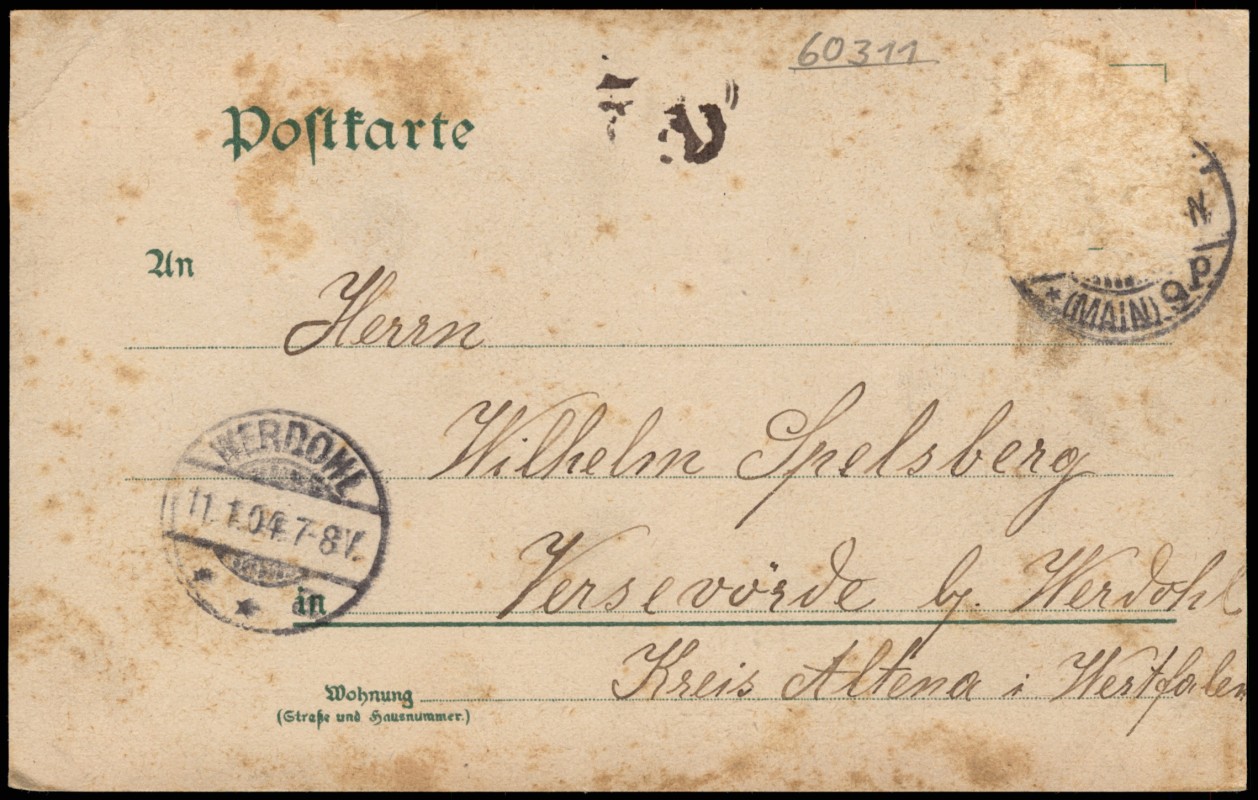 60311
Postkarte
An
Herrn
(MAIN) 9P
Wilhelm Spelsberg
WERDOHL
11.1.04.7-8V.
Versevörde b. Werdohl
in
Kreis Altena i Westfalen
Wohnung
(Straße und Hausnummer.)